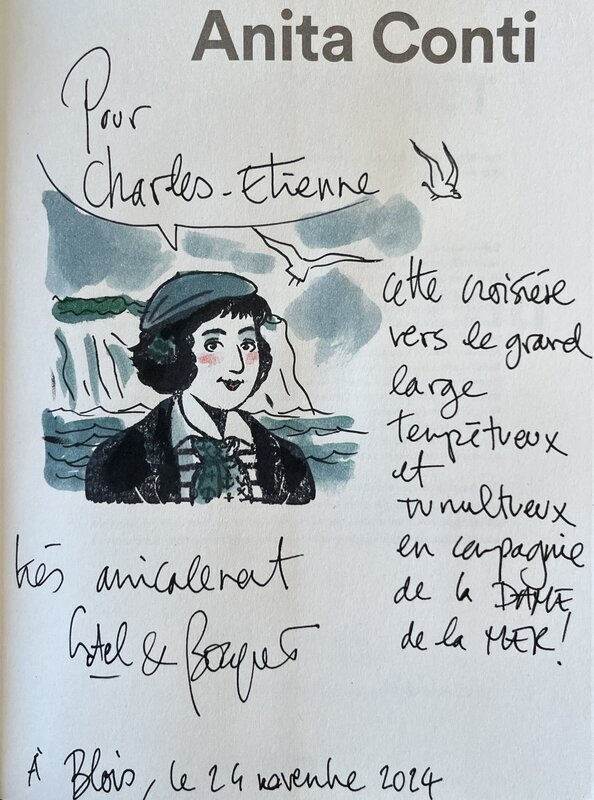 Anita Conti
Pour
Charles-Etienne
cette croisière
vers le grand
large
tempêtueux
et
tumultueux
en compagnie
de la DAME
de la MER!
très amicalement
Catel & Bocquet
À Blois, le 24 novembre 2024